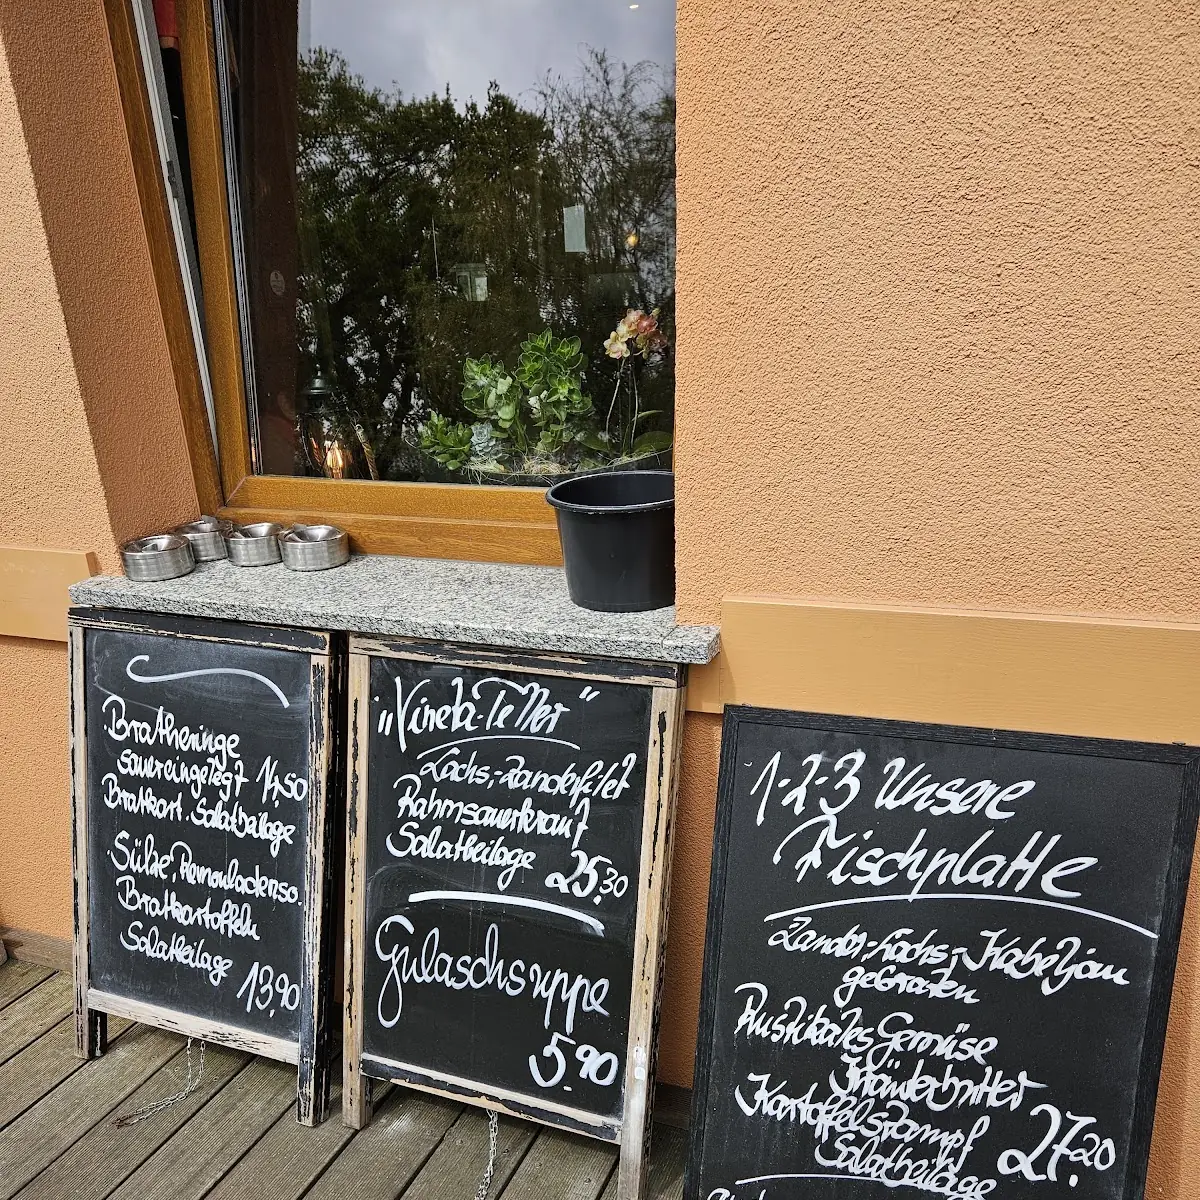 Bratheringe
sauereingelegt 14,50
Bratkart. Salatbeilage
Sülze, Remouladenso.
Bratkartoffeln
Salatbeilage 13,90
„Vineta-Teller“
Lachs,-Zanderfilet
Rahmsauerkraut
Salatbeilage 25,30
Gulaschsuppe
5,90
1-2-3 Unsere
Fischplatte
Zander,-Lachs,-Kabeljau
gebraten
Rustikales Gemüse
Kräuterbutter
Kartoffelstampf
Salatbeilage 27,20